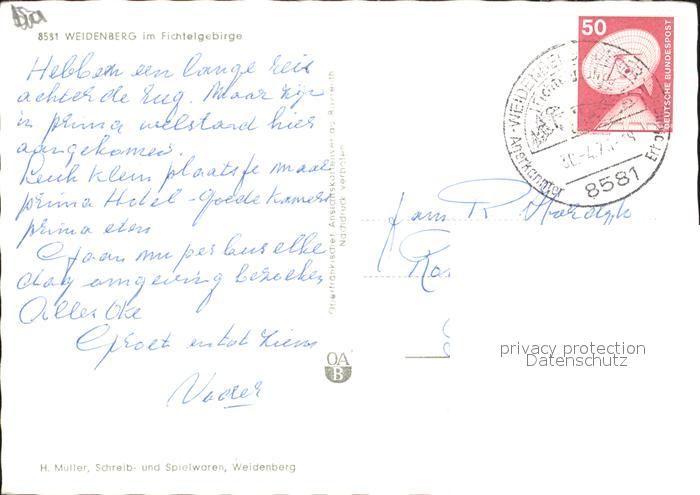 8581 WEIDENBERG im Fichtelgebirge
Hebben een lange reis
achter de rug. Maar zijn
in prima welstand hier
aangekomen.
Leuk klein plaatsje maar
prima Hotel - goede kamers
prima eten
Gaan nu per bus elke
dag omgeving bezoeken
Alles Oke
Groet en tot ziens
Vader
Oberfränkischer Ansichtskartenverlag Bayreuth
Nachdruck verboten
OA
B
H. Müller, Schreib- und Spielwaren, Weidenberg
50
DEUTSCHE BUNDESPOST
WEIDENBERG
Anerkannter
8581
Fam R.
privacy protection
Datenschutz